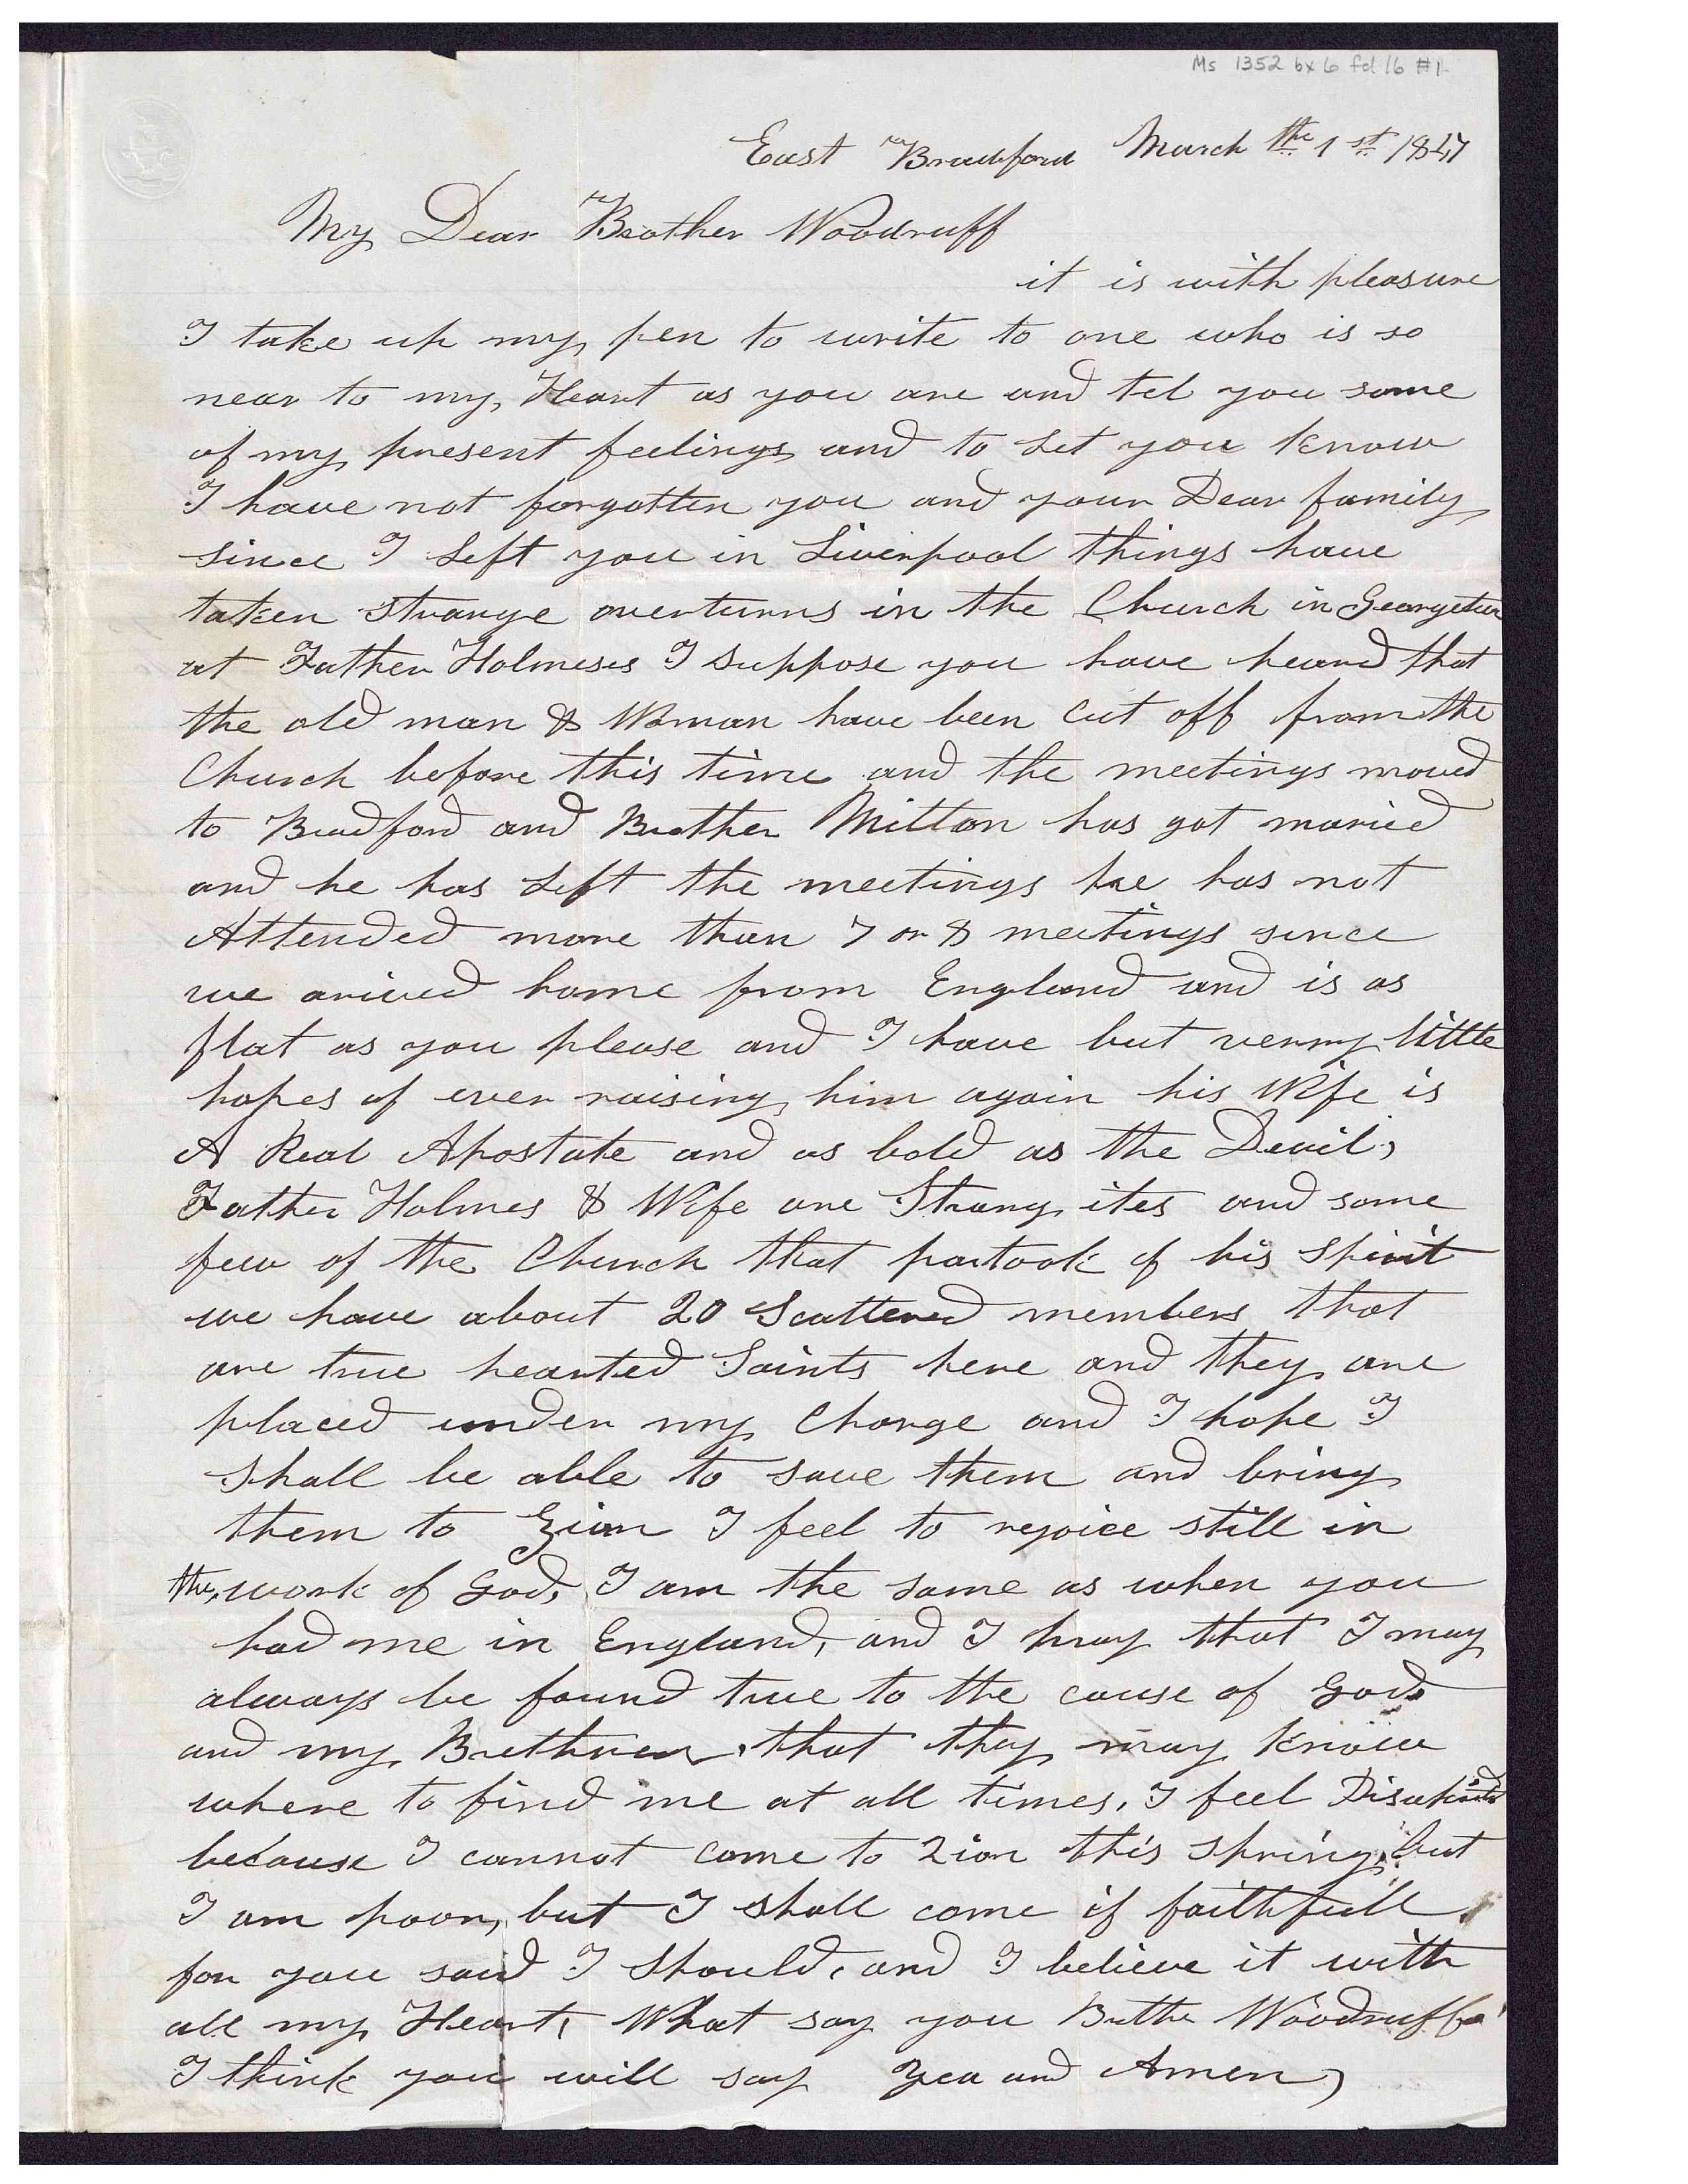 Ms 1352 bx 6 fd 16 #1
East Bradford March the 1st 1847
My Dear Brother Woodruff
it is with pleasure
I take up my pen to write to one who is so
near to my Heart as you are and tel you some
of my present feelings and to Let you know
I have not forgotten you and your Dear family
since I Left you in Liverpool things have
taken strange overturns in the Church in Georgetown
at Father Holmeses I suppose you have heard that
the old man & Woman have been cut off from the
Church before this time and the meetings moved
to Bradford and Brother Milton has got maried
and he has Left the meetings he has not
Attended more than 7 or 8 meetings since
we arived home from England and is as
flat as you please and I have but verry little
hopes of ever raising him again his Wife is
A Real Apostate and as bold as the Devil,
Father Holmes & Wife are Strang ites and some
few of the Church that partook of his Spirit
we have about 20 Scattered members that
are true hearted Saints here and they are
placed under my Charge and I hope I
shall be able to save them and bring
them to Zion I feel to rejoice still in
the, work of God, I am the same as when you
had me in England, and I pray that I may
always be found true to the cause of God
and my Brethren, that they may know
where to find me at all times, I feel
because I cannot come to Zion this spring, but
I am poor, but I shall come if faithfull
for you said I should, and I believe it with
all my Heart, What say you Brother Woodruff
I think you will say Yea and Amen,